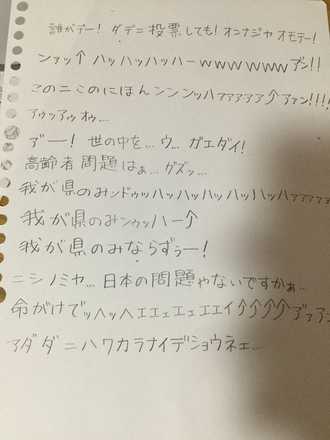 誰がデー! ダデニ投票しても! オンナジヤ オモデー!
ンァッ↑ハッハッハッハーwwwwwwア゛ン!!
このニこのにほんンンンッハアアアアア↑アァン!!!!
アゥッアゥゥオゥ...
ア゛ー! 世の中を...ウ...ガエダイ!
高齢者問題はぁ...グズッ...
我が県のみンドゥッハッハッハッハッハッハアアアアア
我が県のみンゥッハー↑
我が県のみならずぅー!
ニシノミヤ...日本の問題やないですかぁ...
命がけでッヘッヘエエェエェエエイ↑↑↑↑ア゛アアン
アダダニハワカラナイデショウネェ...